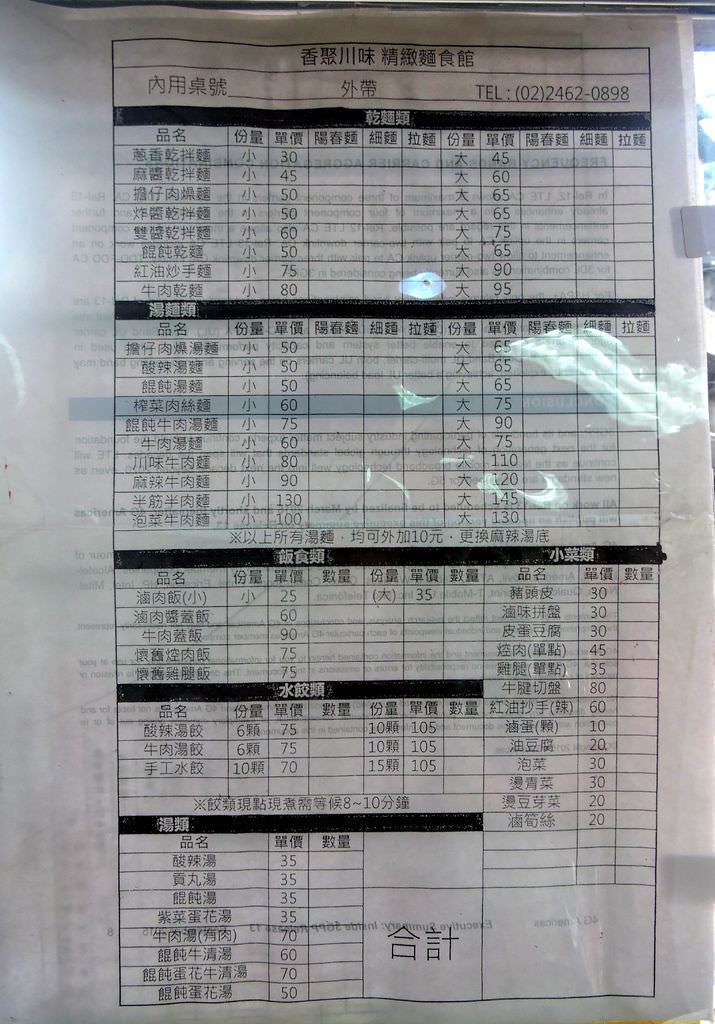 香聚川味 精緻麵食館
內用桌號 外帶 TEL : (02)2462-0898
乾麵類
品名 份量 單價 陽春麵 細麵 拉麵 份量 單價 陽春麵 細麵 拉麵
蔥香乾拌麵 小 30 大 45
麻醬乾拌麵 小 45 大 60
擔仔肉燥麵 小 50 大 65
炸醬乾拌麵 小 50 大 65
雙醬乾拌麵 小 60 大 75
餛飩乾麵 小 50 大 65
紅油炒手麵 小 75 大 90
牛肉乾麵 小 80 大 95
湯麵類
品名 份量 單價 陽春麵 細麵 拉麵 份量 單價 陽春麵 細麵 拉麵
擔仔肉燥湯麵 小 50 大 65
酸辣湯麵 小 50 大 65
餛飩湯麵 小 50 大 65
榨菜肉絲麵 小 60 大 75
餛飩牛肉湯麵 小 75 大 90
牛肉湯麵 小 60 大 75
川味牛肉麵 小 80 大 110
麻辣牛肉麵 小 90 大 120
半筋半肉麵 小 130 大 145
泡菜牛肉麵 小 100 大 130
※以上所有湯麵，均可外加10元，更換麻辣湯底
飯食類
品名 份量 單價 數量 份量 單價 數量
滷肉飯(小) 小 25 (大) 35
滷肉醬蓋飯 60
牛肉蓋飯 90
懷舊焢肉飯 75
懷舊雞腿飯 75
水餃類
品名 份量 單價 數量 份量 單價 數量
酸辣湯餃 6顆 75 10顆 105
牛肉湯餃 6顆 75 10顆 105
手工水餃 10顆 70 15顆 105
※餃類現點現煮需等候8~10分鐘
小菜類
品名 單價 數量
豬頭皮 30
滷味拼盤 30
皮蛋豆腐 30
焢肉(單點) 45
雞腿(單點) 35
牛腱切盤 80
紅油抄手(辣) 60
滷蛋(顆) 10
油豆腐 20
泡菜 30
燙青菜 30
燙豆芽菜 20
滷筍絲 20
湯類
品名 單價 數量
酸辣湯 35
貢丸湯 35
餛飩湯 35
紫菜蛋花湯 35
牛肉湯(有肉) 70
餛飩牛清湯 60
餛飩蛋花牛清湯 70
餛飩蛋花湯 50
合計